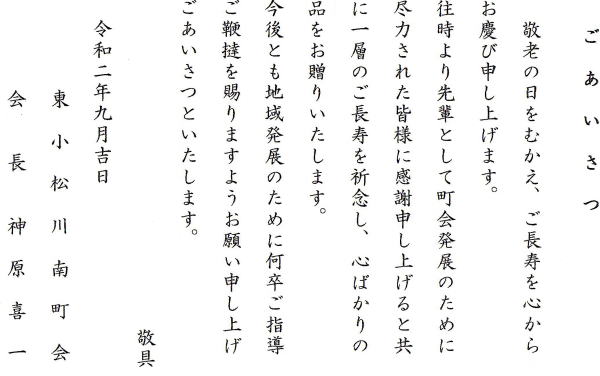 ごあいさつ
敬老の日をむかえ、ご長寿を心から
お慶び申し上げます。
往時より先輩として町会発展のために
尽力された皆様に感謝申し上げると共
に一層のご長寿を祈念し、心ばかりの
品をお贈りいたします。
今後とも地域発展のために何卒ご指導
ご鞭撻を賜りますようお願い申し上げ
ごあいさつといたします。
敬具
令和二年九月吉日
東小松川南町会
会長 神原喜一